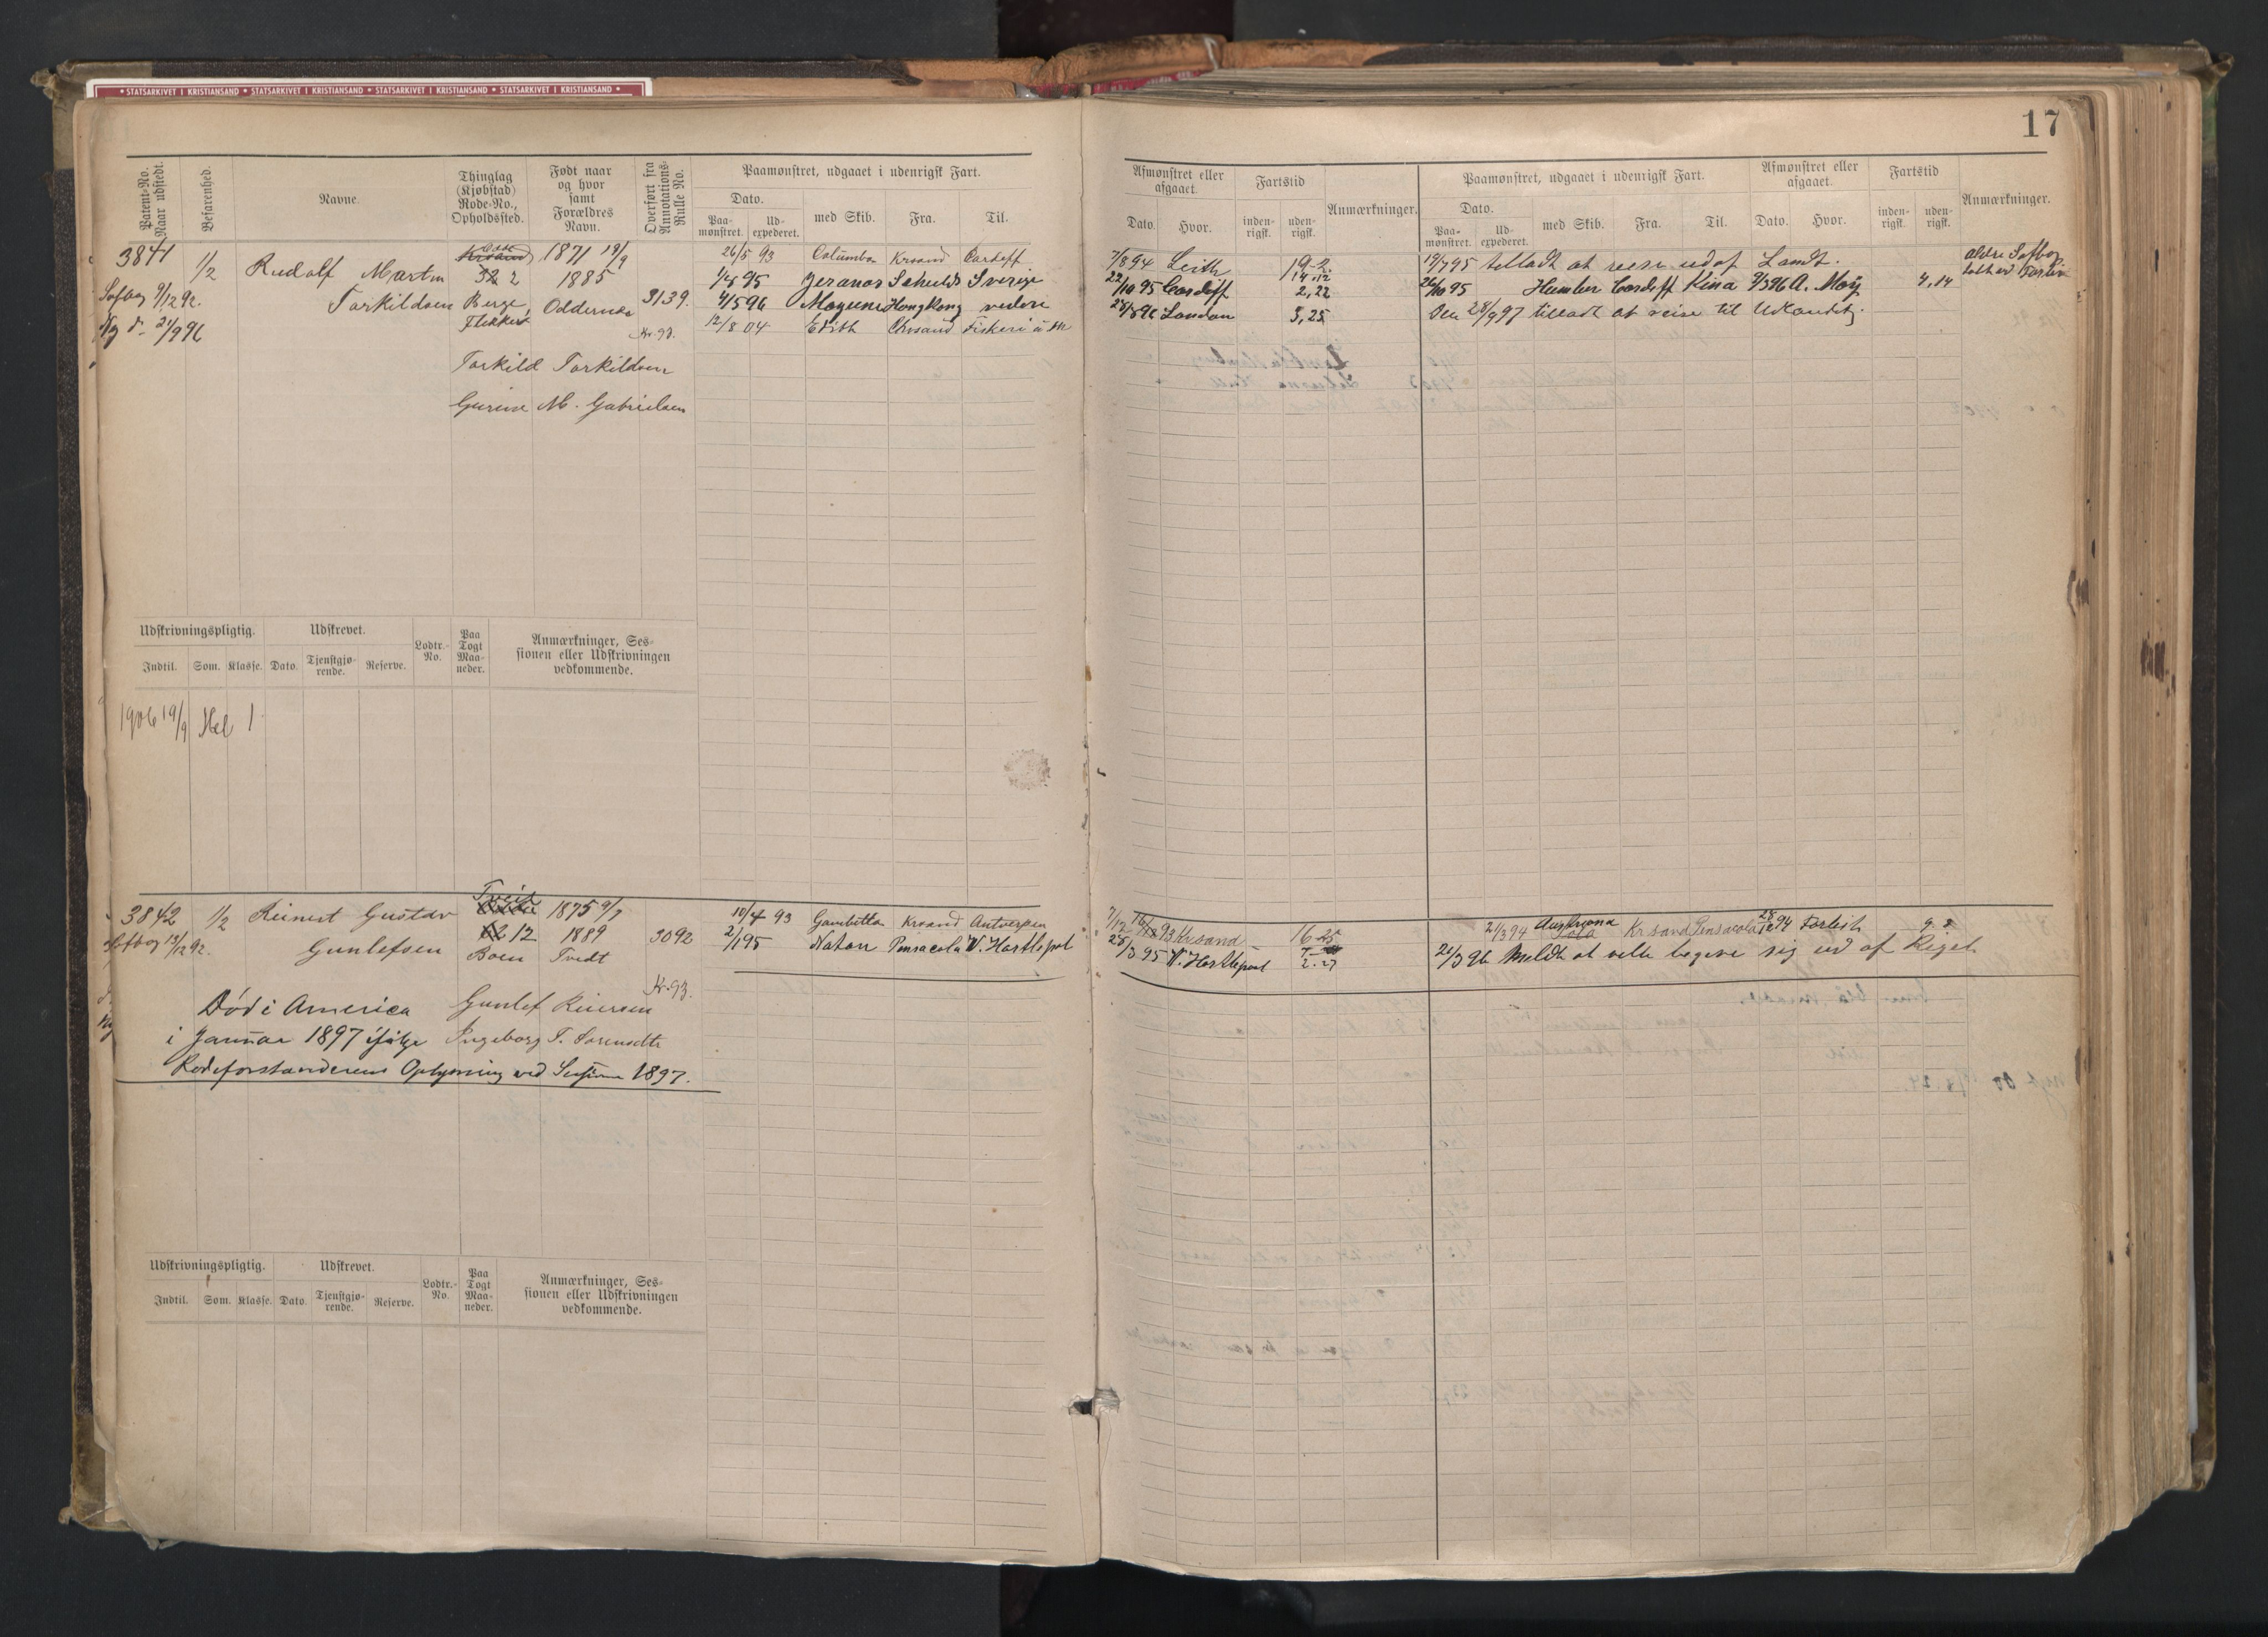 • STATSARKIVET I KRISTIANSAND • STATSARKIVET I KRISTIANSAND • STATSARKIVET I KRISTIANSAND • STATSARKIVET I KRISTIANSAND •
17
Patent-No. Naar udstedt.
Befarenhed.
Navne.
Thinglag (Kjøbstad) Rode-No., Opholdssted.
Født naar og hvor samt Forældres Navn.
Overført fra Annotations-Rulle No.
Paamønstret, udgaaet i udenrigsk Fart.
Dato.
Paa-mønstret.
Ud-expederet.
med Skib.
Fra.
Til.
3841
1/2
Rudolf Martin
Torkildsen
Krsand
32 2
Berge
Flekkerø
1871 19/9
1885
Oddernes
3139.
Kr. 93.
Søfbog 9/12 92.
Ny do 21/9 96
Torkild Torkildsen
Gurine M. Gabrielsen
26/5 93 Columba Krsand Cardiff
95 Sverige
4/5 96 HongKong videre
12/8 04 Edith Chrsand Fiskeri
Udskrivningspligtig.
Udskrevet.
Lodtr.-No.
Paa Togt Maa-neder.
Anmærkninger, Ses-sionen eller Udskrivningen vedkommende.
Indtil.
Som.
Klasse.
Dato.
Tjenstgjø-rende.
Reserve.
1906 19/9 Hel 1
3842
1/2
Reinert Gustav
Gunlefsen
Tveit
12
Boen
1875 9/7
1889
Tvedt
3092
Kr. 93.
Søfbog 13/12 92.
Død i America
i Januar 1897 ifølge
Rodeforstanderens Oplysning ved Sessionen 1897.
Gunlef Reiersen
Ingeborg T. Sørensdtr
10/4 93 Gambetta Krsand Antverpen
2/1 95 Natan Pensacola W. Hartlepol
Udskrivningspligtig.
Udskrevet.
Lodtr.-No.
Paa Togt Maa-neder.
Anmærkninger, Ses-sionen eller Udskrivningen vedkommende.
Indtil.
Som.
Klasse.
Dato.
Tjenstgjø-rende.
Reserve.
Afmønstret eller afgaaet.
Fartstid
Anmærkninger.
Dato.
Hvor.
inden-rigsk.
uden-rigsk.
Paamønstret, udgaaet i udenrigsk Fart.
Dato.
Paa-mønstret.
Ud-expederet.
med Skib.
Fra.
Til.
Afmønstret eller afgaaet.
Dato.
Hvor.
Fartstid
inden-rigsk.
uden-rigsk.
Anmærkninger.
7/8 94 Leith
22/10 95 Cardiff 2,22
28/8 96 London 3,25
19/7 95 tilladt at reise ud af Landt.
26/10 95 Humber Cardiff Kina 9/3 96 A. Moy 4,14
Den 28/9 97 tilladt at reise til Udlandet
ældre Søfbog
tabt ved Forlis
93 Krsand 16
28/3 95 W. Hartlepool 2.27
21/3 94 Krsand Pensacola 94 Forlist 9.
21/3 96 Meldt at ville begive sig ud af Riget